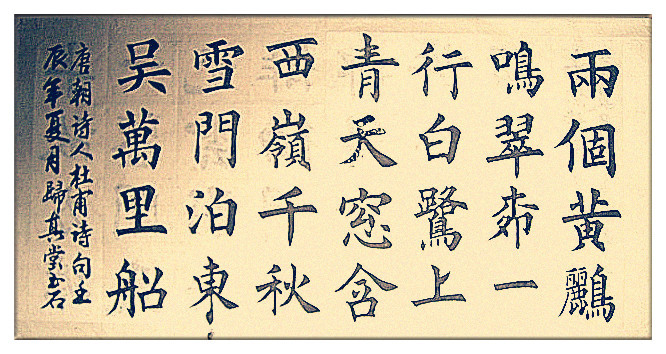 兩個黃鸝
鳴翠柳一
行白鷺上
青天窓含
西嶺千秋
雪門泊東
吳萬里船
唐朝诗人杜甫诗句壬
辰年夏月歸真堂玉石